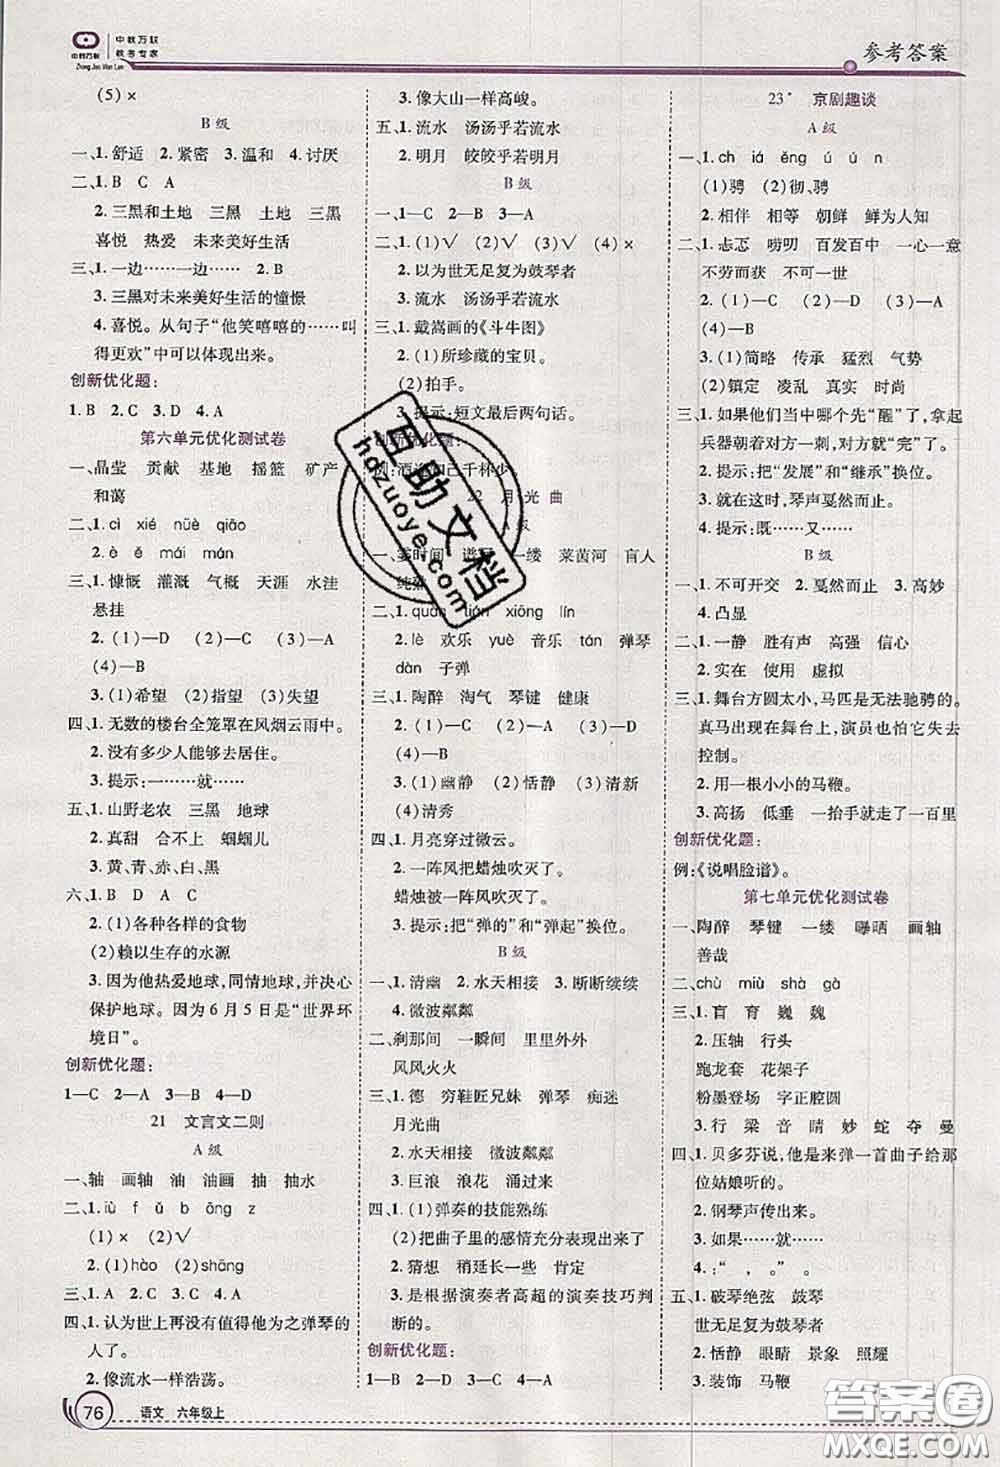 中教万联
教考专家
中教万联
Zhong Jiao Wan Lian
参考答案
(5)×
B 级
一、1.舒适 2.紧密 3.温和 4.讨厌
二、1.B C A
2.三黑和土地 三黑 土地 三黑
喜悦 热爱 未来美好生活
三、1.一边……一边…… 2.B
3.三黑对未来美好生活的憧憬
4.喜悦。从句子“他笑嘻嘻的……叫
得更欢”中可以体现出来。
创新优化题:
1.B 2.C 3.D 4.A
第六单元优化测试卷
一、晶莹 贡献 基地 摇篮 矿产
和蔼
二、1.cì xié nüè qiāo
2.è mái mán
三、1.慷慨 灌溉 气概 天涯 水洼
悬挂
2.(1)—D (2)—B (3)—C
(4)—A
3.(1)希望 (2)指望 (3)失望
四、1.无数的楼台全笼罩在风烟云雨中。
2.没有多少人能够去居住。
3.提示:一……就……
五、1.山野老农 三黑 地球
2.真甜 合不上 蝈蝈儿
3.黄、青、赤、白、黑
六、1.B D A C
2.(1)各种各样的食物
(2)赖以生存的水源
3.因为他热爱地球,同情地球,并决心
保护地球。因为 6 月 5 日是“世界环
境日”。
创新优化题:
1—C 2—A 3—B 4—D
21 文言文二则
A 级
一、轴 画轴 油 油画 抽 抽水
二、1.iù f ǔ b āng z
(1)× (2)√
2.(1)hào (2)shāng
三、1.A 2.C 3.C 4.A
四、1.认为世上再没有值得他为之弹琴的
人了。
2.像流水一样浩荡。
3.像大山一样高峻。
五、1.流水 汤汤乎若流水
2.明月 皎皎乎若明月
B 级
一、1—C 2—B 3—A
二、1.(1)√ (2)√ (3)√ (4)×
2.以为世无足复为鼓琴者
3.流水 汤汤乎若流水
三、1.戴嵩画的《斗牛图》
2.(1)所珍藏的宝贝。
(2)拍手。
3.提示:短文最后两句话。
创新优化题:
例:酒逢知己千杯少。
22 月光曲
A 级
一、 时间 谱 一缕 莱茵河 盲人
纯熟
二、1.quán xiōng lín
2.lè 欢乐 yuè 音乐 tán 弹琴
dàn 子弹
三、1.陶醉 淘气 琴键 健康
2.(1)—C (2)—A (3)—D
(4)—B
3.(1)幽静 (2)恬静 (3)清新
(4)清秀
四、1.月亮穿过微云。
2.一阵风把蜡烛吹灭了。
蜡烛被一阵风吹灭了。
3.提示:把“弹的”和“弹起”换位。
B 级
一、1.清幽 2.水天相接 3.断断续续
4.微波粼粼
二、刹那间 一瞬间 里里外外
风风火火
三、1.德 穷鞋匠兄妹 弹琴 痴迷
月光曲
2.水天相接 微波粼粼
3.巨浪 浪花 涌过来
四、1.(1)弹奏的技能熟练
(2)把曲子里的感情充分表现出来了
2.猜想 稍长一些 肯定
3.是根据演奏者高超的演奏技巧判
断的。
创新优化题:
1—B 2—A 3—D 4—C
23* 京剧趣谈
A 级
一、1.ch iá ěng ú ú n
(1)骋 (2)彻、骋
2.相伴 相等 朝鲜 鲜为人知
二、1.忐忑 唠叨 百发百中 一心一意
不劳而获 不可一世
2.(1)—C (2)—D (3)—A
(4)—B
3.(1)简略 传承 猛烈 气势
(2)镇定 凌乱 真实 时尚
三、1.如果他们当中哪个先“醒”了,拿起
兵器朝着对方一刺,对方就“完”了。
2.提示:把“发展”和“继承”换位。
3.就在这时,琴声戛然而止。
4.提示:既……又……
B 级
一、1.不可开交 2.戛然而止 3.高妙
4.凸显
二、1.一静 胜有声 高强 信心
2.实在 使用 虚拟
三、1.舞台方圆太小,马匹是无法驰骋的。
真马出现在舞台上,演员也怕它失去
控制。
2.用一根小小的马鞭。
3.高扬 低垂 一抬手就走了一百里
创新优化题:
例:《说唱脸谱》。
第七单元优化测试卷
一、陶醉 琴键 一缕 曝晒 画轴
善哉
二、chù miù shà gà
三、1.盲 育 巍 魏
2.压轴 行头
跑龙套 花架子
粉墨登场 字正腔圆
3.行 梁 音 睛 妙 蛇 夺 曼
四、1.贝多芬说,他是来弹一首曲子给那
位姑娘听的。
2.钢琴声传出来。
3.如果……就……
4.:“ , 。” 。
五、1.破琴绝弦 鼓琴
世无足复为鼓琴者
2.恬静 眼睛 景象 照耀
3.装饰 马鞭
互助文档
hdzuoye.com
76 语文 六年级上
答案圈
MXQE.COM